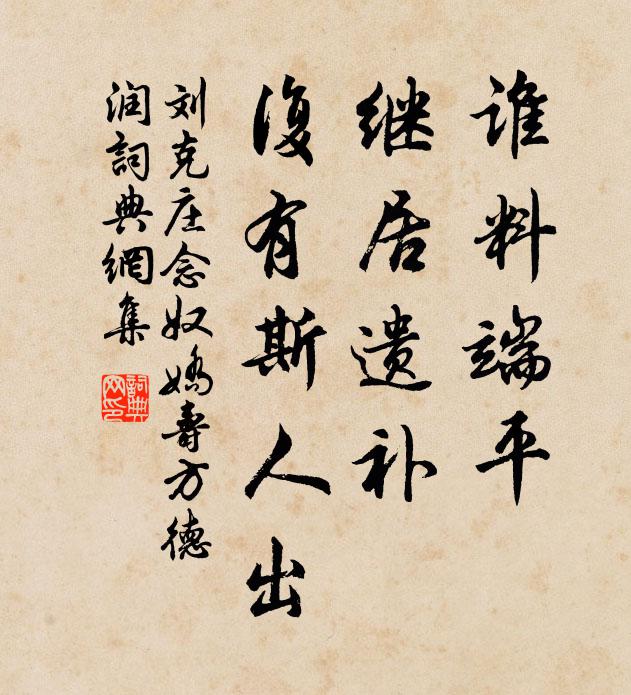 谁料端平
继居遗补
复有斯人出
刘克庄念奴娇寿方德
润词典网集
词典网印